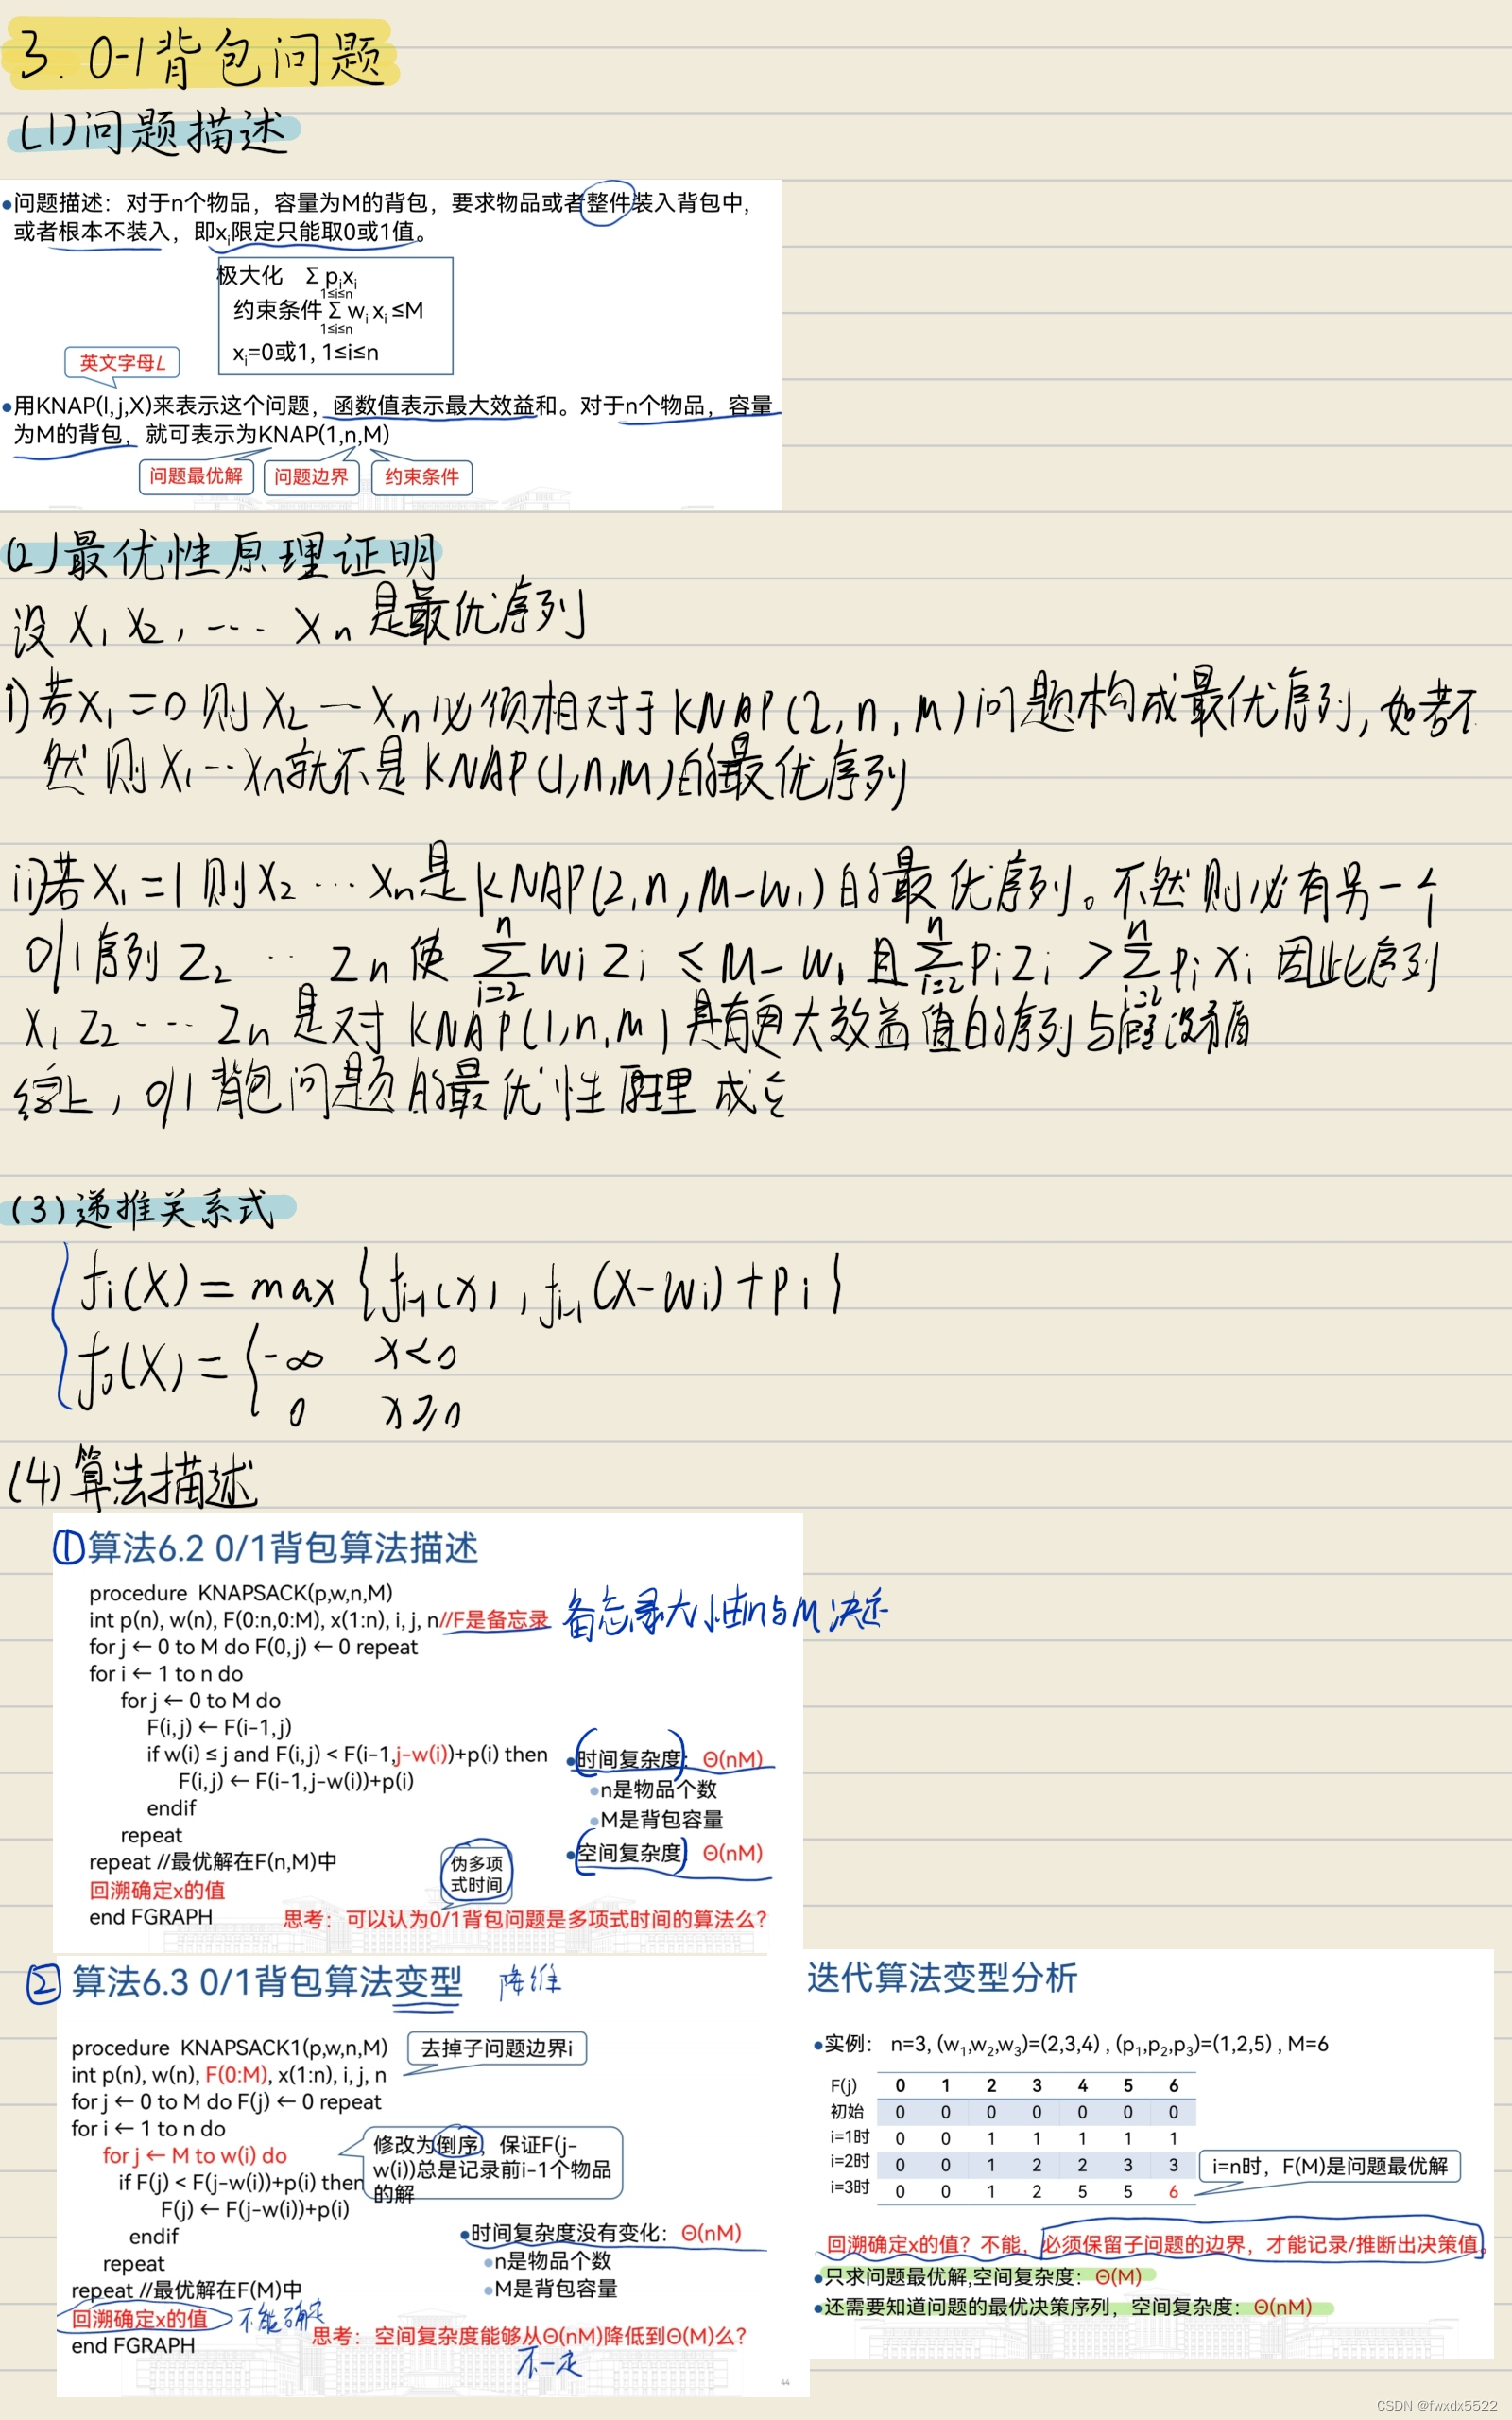 3. 0-1背包问题
(1)问题描述
•问题描述：对于n个物品，容量为M的背包，要求物品或者整件装入背包中，
或者根本不装入，即xi限定只能取0或1值。
极大化 Σ pixi
1≤i≤n
约束条件 Σ wi xi ≤M
1≤i≤n
xi=0或1, 1≤i≤n
英文字母L
•用KNAP(l,j,X)来表示这个问题，函数值表示最大效益和。对于n个物品，容量
为M的背包，就可表示为KNAP(1,n,M)
问题最优解 问题边界 约束条件
(2)最优性原理证明
设 x1 x2, … xn 是最优序列
i)若x1=0则x2…xn必须相对于KNAP(2,n,M)问题构成最优序列,如若不
然则x1…xn就不是KNAP(1,n,M)的最优序列
ii)若x1=1则x2…xn是KNAP(2,n,M-w1)的最优序列。不然则必有另一个
0/1序列 z2 … zn 使 n∑i=2 wizi ≤ M-w1 且 n∑i=2 pizi > n∑i=2 pixi 因此序列
x1 z2 … zn 是对 KNAP(1,n,M)具有更大效益值的序列与假设矛盾
综上, 0/1背包问题的最优性原理成立
(3)递推关系式
fi(X) = max {fi-1(x), fi-1(X-wi)+pi}
f0(X) = {-∞ x<0
0 x≥0
(4)算法描述
① 算法6.2 0/1背包算法描述
procedure KNAPSACK(p,w,n,M)
int p(n), w(n), F(0:n,0:M), x(1:n), i, j, n//F是备忘录 备忘录大小由n与M决定
for j ← 0 to M do F(0,j) ← 0 repeat
for i ← 1 to n do
for j ← 0 to M do
F(i,j) ← F(i-1,j)
if w(i) ≤ j and F(i,j) < F(i-1,j-w(i))+p(i) then
F(i,j) ← F(i-1,j-w(i))+p(i)
endif
repeat
repeat //最优解在F(n,M)中
回溯确定x的值
end FGRAPH
•时间复杂度：Θ(nM)
•n是物品个数
•M是背包容量
•空间复杂度：Θ(nM)
伪多项
式时间
思考：可以认为0/1背包问题是多项式时间的算法么？
② 算法6.3 0/1背包算法变型 降维
procedure KNAPSACK1(p,w,n,M)
去掉子问题边界i
int p(n), w(n), F(0:M), x(1:n), i, j, n
for j ← 0 to M do F(j) ← 0 repeat
for i ← 1 to n do
for j ← M to w(i) do
if F(j) < F(j-w(i))+p(i) then
F(j) ← F(j-w(i))+p(i)
endif
repeat
repeat //最优解在F(M)中
回溯确定x的值 不能确定
end FGRAPH
修改为倒序，保证F(j-
w(i))总是记录前i-1个物品
的解
•时间复杂度没有变化：Θ(nM)
•n是物品个数
•M是背包容量
思考：空间复杂度能够从Θ(nM)降低到Θ(M)么？
不一定
44
迭代算法变型分析
•实例： n=3, (w1,w2,w3)=(2,3,4) , (p1,p2,p3)=(1,2,5) , M=6
F(j) 0 1 2 3 4 5 6
初始 0 0 0 0 0 0 0
i=1时 0 0 1 1 1 1 1
i=2时 0 0 1 2 2 3 3
i=3时 0 0 1 2 5 5 6
i=n时，F(M)是问题最优解
回溯确定x的值？不能，必须保留子问题的边界，才能记录/推断出决策值。
•只求问题最优解,空间复杂度：Θ(M)
•还需要知道问题的最优决策序列，空间复杂度：Θ(nM)
CSDN @fwxdx5522